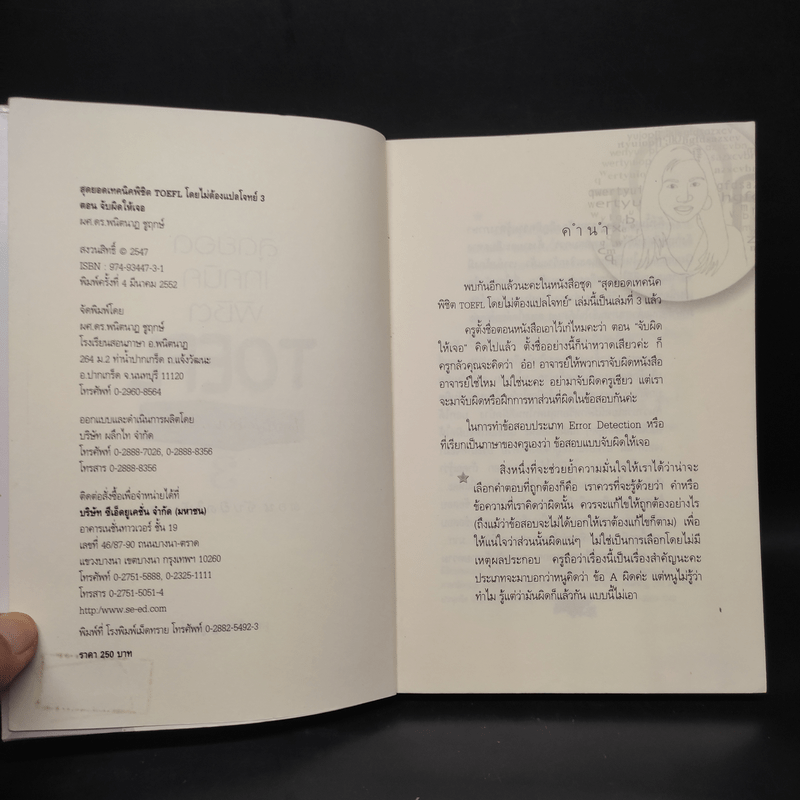 สุดยอดเทคนิคพิชิต TOEFL โดยไม่ต้องแปลโจทย์ 3
ตอน จับผิดให้เจอ
ผศ.ดร.พนิตนาฎ ชูฤกษ์
สงวนสิทธิ์ © 2547
ISBN : 974-93447-3-1
พิมพ์ครั้งที่ 4 มีนาคม 2552
จัดพิมพ์โดย
ผศ.ดร.พนิตนาฏ ชูฤกษ์
โรงเรียนสอนภาษา อ.พนิตนาฏ
264 ม.2 ท่าน้ำปากเกร็ด ถ.แจ้งวัฒนะ
อ.ปากเกร็ด จ.นนทบุรี 11120
โทรศัพท์ 0-2960-8564
ออกแบบและดำเนินการผลิตโดย
บริษัท ผลึกไท จำกัด
โทรศัพท์ 0-2888-7026, 0-2888-8356
โทรสาร 0-2888-8356
ติดต่อสั่งซื้อเพื่อจำหน่ายได้ที่
บริษัท ซีเอ็ดยูเคชั่น จำกัด (มหาชน)
อาคารเนชั่นทาวเวอร์ ชั้น 19
เลขที่ 46/87-90 ถนนบางนา-ตราด
แขวงบางนา เขตบางนา กรุงเทพฯ 10260
โทรศัพท์ 0-2751-5888, 0-2325-1111
โทรสาร 0-2751-5051-4
http:/www.se-ed.com
พิมพ์ที่ โรงพิมพ์เม็ดทราย โทรศัพท์ 0-2882-5492-3
ราคา 250 บาท
คำนำ
พบกันอีกแล้วนะคะในหนังสือชุด "สุดยอดเทคนิค
พิชิต TOEFL โดยไม่ต้องแปลโจทย์" เล่มนี้เป็นเล่มที่ 3 แล้ว
ครูตั้งชื่อตอนหนังสือเอาไว้เก๋ไหมคะว่า ตอน "จับผิด
ให้เจอ" คิดไปแล้ว ตั้งชื่ออย่างนี้ก็น่าหวาดเสียวค่ะ ก็
ครูกลัวคุณจะคิดว่า อ๋อ! อาจารย์ให้พวกเราจับผิดหนังสือ
อาจารย์ใช่ไหม ไม่ใช่นะคะ อย่ามาจับผิดครูเชียว แต่เรา
จะมาจับผิดหรือฝึกการหาส่วนที่ผิดในข้อสอบกันค่ะ
ในการทำข้อสอบประเภท Error Detection หรือ
ที่เรียกเป็นภาษาของครูเองว่า ข้อสอบแบบจับผิดให้เจอ
สิ่งหนึ่งที่จะช่วยย้ำความมั่นใจให้เราได้ว่าน่าจะ
เลือกคำตอบที่ถูกต้องก็คือ เราควรที่จะรู้ด้วยว่า คำหรือ
ข้อความที่เราคิดว่าผิดนั้น ควรจะแก้ไขให้ถูกต้องอย่างไร
(ถึงแม้ว่าข้อสอบจะไม่ได้บอกให้เราต้องแก้ไขก็ตาม) เพื่อ
ให้แน่ใจว่าส่วนนั้นผิดแน่ๆ ไม่ใช่เป็นการเลือกโดยไม่มี
เหตุผลประกอบ ครูถือว่าเรื่องนี้เป็นเรื่องสำคัญนะคะ
ประเภทจะมาบอกว่าหนูคิดว่า ข้อ A ผิดค่ะ แต่หนูไม่รู้ว่า
ทำไม รู้แต่ว่ามันผิดก็แล้วกัน แบบนี้ไม่เอา
1